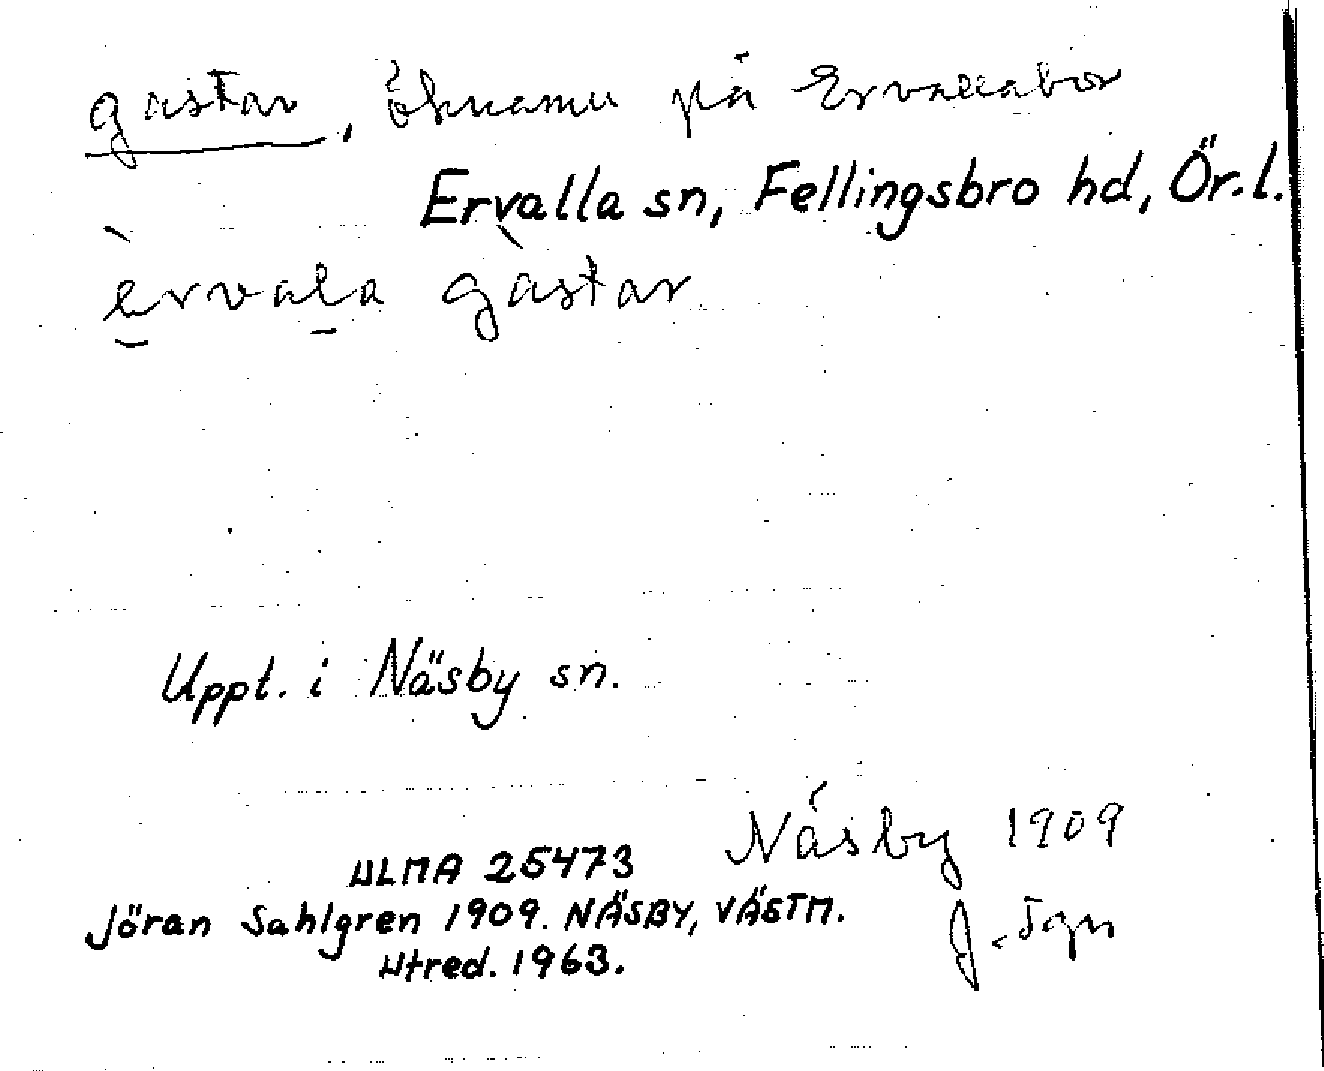 gastar, öknamn på Ervallabor
Ervalla sn, Fellingsbro hd, Ör. l.
èrvala gàstar
Uppt. i Näsby sn.
Näsby 1909
J. Sgn
ULMA 25473
Jöran Sahlgren 1909. NÄSBY, VÄSTM.
Utred. 1963.